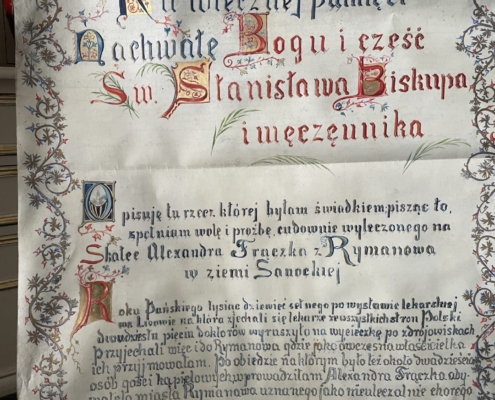 Ku wiecznej pamięci
Na chwałę Bogu i cześć
Św. Stanisława Biskupa
i męczennika
Opisuję tu rzecz, której byłam świadkiem; pisząc to,
spełniam wolę i prożbę, cudownie wyleczonego na
Skałce Alexandra Frączka z Rymanowa
w ziemi Sanockiej
Roku Pańskiego tysiąc dziewięć setnego po wystawie lekarskiej
we Lwowie na którą zjechali się lekarze ze wszystkich stron Polski
dwudziestu pięciu doktorów wyruszyło na wycieczkę po zdrojowiskach
Przyjechali więc i do Rymanowa gdzie jako ówczesna właścicielka
ich przyjmowałam. Po obiedzie na którym było też około dwadzieścia
osób gości kąpielowych, wprowadziłam Alexandra Frączka, oby
watela miasta Rymanowa uznanego jako nieuleczalnie chorego